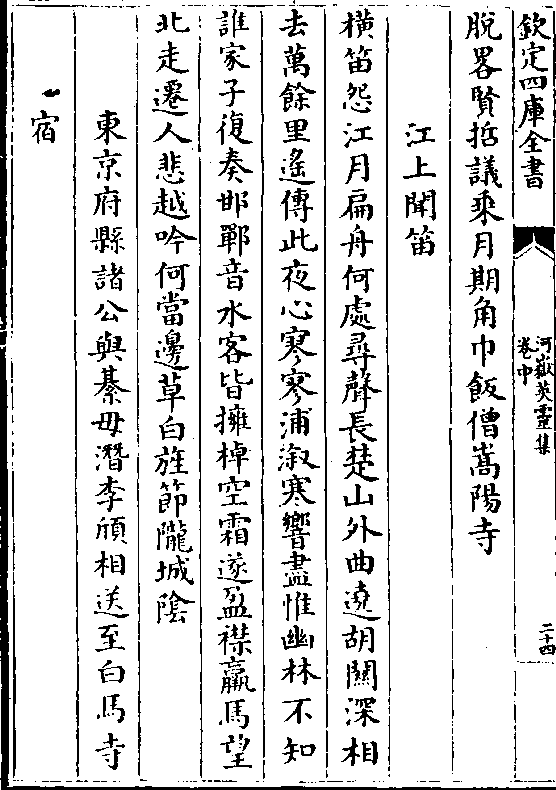 欽定四庫全書
河嶽英靈集
卷中
二十四
脫畧賢哲議乘月期角巾飯僧嵩陽寺
江上聞笛
橫笛怨江月扁舟何處尋聲長楚山外曲遶胡關深相
去萬餘里遙傳此夜心寥寥浦溆寒響盡惟幽林不知
誰家子復奏邯鄲音水客皆擁棹空霜遂盈襟羸馬望
北走遷人悲越吟何當邊草白旌節隴城陰
東京府縣諸公與綦毋潛李頎相送至白馬寺
宿